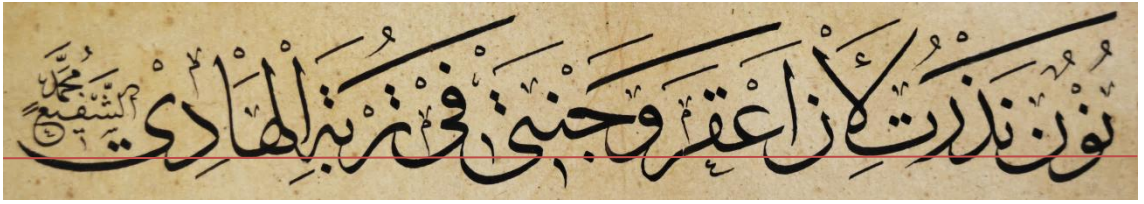 نون نذرت لأن اعفر وجنتى فى تربة الهادى محمد الشفيع